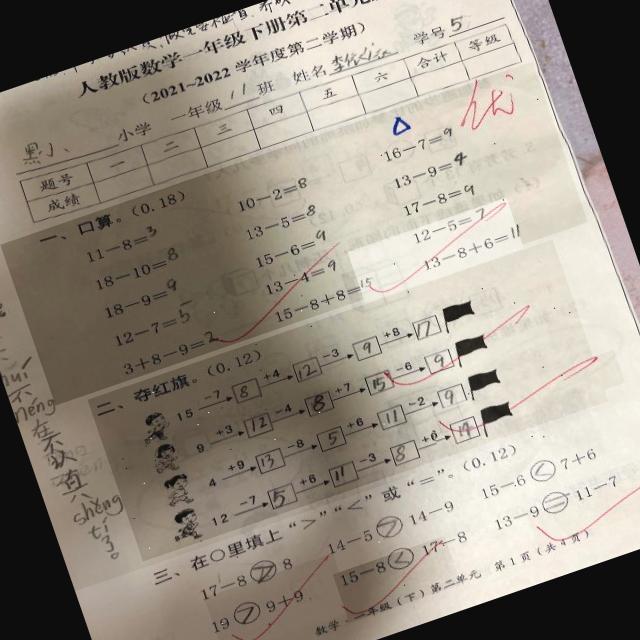 人教版数学一年级下册第二单元
（2021~2022学年度第二学期）
小学 一年级 11 班 姓名 学号 5
题号 一 二 三 四 五 六 合计 等级
成绩
优
一、口算。（0.18）
11－8=3 10－2=8 16－7=9
18－10=8 13－5=8 13－9=4
18－9=9 15－6=9 17－8=9
12－7=5 13－4=9 12－5=7
3＋8－9=2 15－8＋8=15 13－8＋6=11
二、夺红旗。（0.12）
15 －7 8 +4 12 －3 9 +8 17
9 +3 12 －4 8 +7 15 －6 9
4 +9 13 －8 5 +6 11 －2 9
12 －7 5 +6 11 －3 8 +6 14
三、在○里填上“>”“<”或“=”。（0.12）
17－8 > 8 14－5 > 14－9 15－6 < 7+6
19 > 9+9 15－8 < 17－8 13－9 = 11－7
数学 一年级（下）第二单元 第1页（共4页）